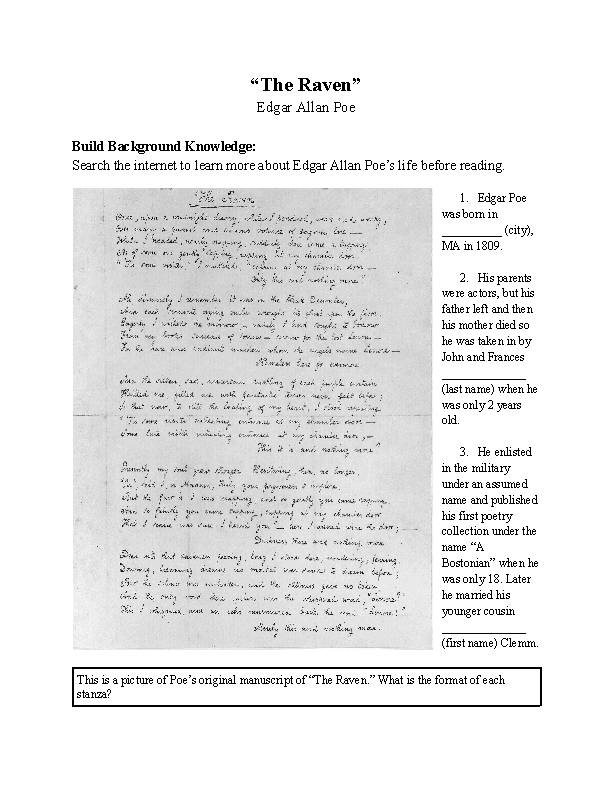 “The Raven”
Edgar Allan Poe
Build Background Knowledge:
Search the internet to learn more about Edgar Allan Poe’s life before reading.
The Raven
Once, upon a midnight dreary, while I pondered, weak and weary,
Over many a quaint and curious volume of forgotten lore —
While I nodded, nearly napping, suddenly there came a tapping
As of some one gently rapping, rapping at my chamber door
"'Tis some visiter," I muttered, "tapping at my chamber door —
Only this and nothing more."
Ah distinctly I remember it was in the bleak December,
And each dying ember wrought its ghost upon the floor.
Eagerly I wished the morrow — vainly I had sought to borrow
From my books surcease of sorrow — sorrow for the lost Lenore —
For the rare and radiant maiden whom the angels name Lenore —
Nameless here for evermore.
And the silken, sad, uncertain rustling of each purple curtain
Thrilled me, filled me with fantastic terrors never felt before;
So that now, to still the beating of my heart, I stood repeating
"'Tis some entreating entrance at my chamber door —
Some late entreating entrance at my chamber door; —
This it is and nothing more."
Presently my soul grew stronger. Hesitating then no longer,
"Sir," said I, "or Madam, truly your forgiveness I implore;
But the fact is I was napping, and so gently you came rapping,
And so faintly you came tapping, tapping at my chamber door
That I scarce was sure I heard you" — here I opened wide the door;
Darkness there and nothing more.
Deep into that darkness peering, long I stood there, wondering, fearing,
Doubting, dreaming dreams no mortal ever dared to dream before;
But the silence was unbroken, and the gave no token
And the only word there spoken was the whispered word, "Lenore!"
This I whispered, and an echo murmured back the word "Lenore!"
Merely this and nothing more.
1. Edgar Poe
was born in
__________ (city),
MA in 1809.
2. His parents
were actors, but his
father left and then
his mother died so
he was taken in by
John and Frances
______________
(last name) when he
was only 2 years
old.
3. He enlisted
in the military
under an assumed
name and published
his first poetry
collection under the
name “A
Bostonian” when he
was only 18. Later
he married his
younger cousin
______________
(first name) Clemm.
This is a picture of Poe’s original manuscript of “The Raven.” What is the format of each
stanza?